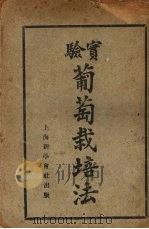 實驗
葡萄栽培法
上海新學會社出版